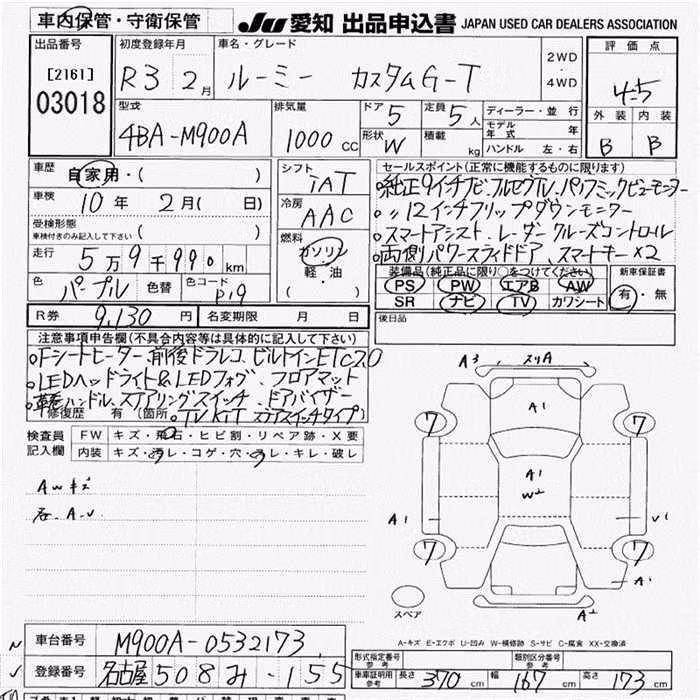 車内保管・守衛保管
JU 愛知 出品申込書 JAPAN USED CAR DEALERS ASSOCIATION
出品番号 初度登録年月 車名・グレード 評価点
[2161] R3 2月 ルーミー カスタムG-T 2WD 4.5
03018 4WD
型式 排気量 ドア 5 定員 5人 ディーラー・並行 外装 内装
4BA-M900A 1000cc 形状 W 積載 kg モデル年式 年 B B
ハンドル 左・右
車歴 自家用・( ) シフト IAT セールスポイント(正常に機能するものに限ります)
車検 10年 2月( 日) 冷房 AAC 純正9インチナビ、フルセグTV、パノラミックビューモニター
受検形態 〃12インチフリップダウンモニター
車検付きのみ記入して下さい ( ) 燃料 スマートアシスト、レーダークルーズコントロール
走行 5万9千990km ガソリン 両側パワースライドドア、スマートキー×2
軽・油 装備品(純正品に限り○をつけてください) 新車保証書
色 パープル 色替 色コード P19 ( ) PS PW エアB AW 有・無
SR ナビ TV カワシート
R券 9,130円 名変期限 月 日 後日品
注意事項申告欄(不具合内容等は具体的に記入して下さい)
Fシートヒーター、前後ドラレコ、ビルトインETC2.0
LEDヘッドライト&LEDフォグ、フロアマット
革巻ハンドル、ステアリングスイッチ、ドアバイザー
修復歴 有 (箇所 TVKIT ステアスイッチタイプ)
検査員 FW キズ・飛石・ヒビ割・リペア跡・X要
記入欄 内装 キズ・汚レ・コゲ・穴・スレ・キレ・破レ
AWキズ
A3 スリA
A1
7 7
A1
W2
A1 V1
7 7
A1
スペア A2
A-キズ E-エクボ U-凹み W-補修跡 S-サビ C-腐食 XX-交換済
車台番号 M900A-0532173
登録番号 名古屋 508 み・155
形式指定番号 参考 類別区分番号 参考
車庫証明用 参考 長さ 370cm 幅 167cm 高さ 173cm